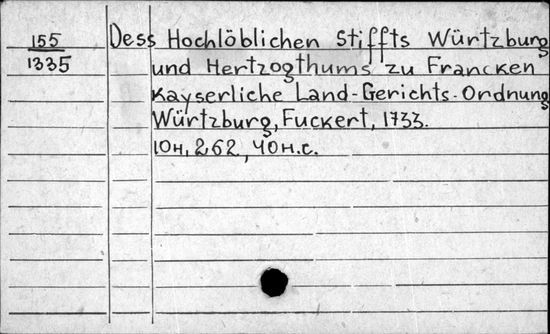 155
1335
Dess Hochlöblichen Stiffts Würtzburg
und Hertzogthums zu Francken
Kayserliche Land-Gerichts-Ordnung
Würtzburg, Fuckert, 1733.
10н, 262, 40н.с.